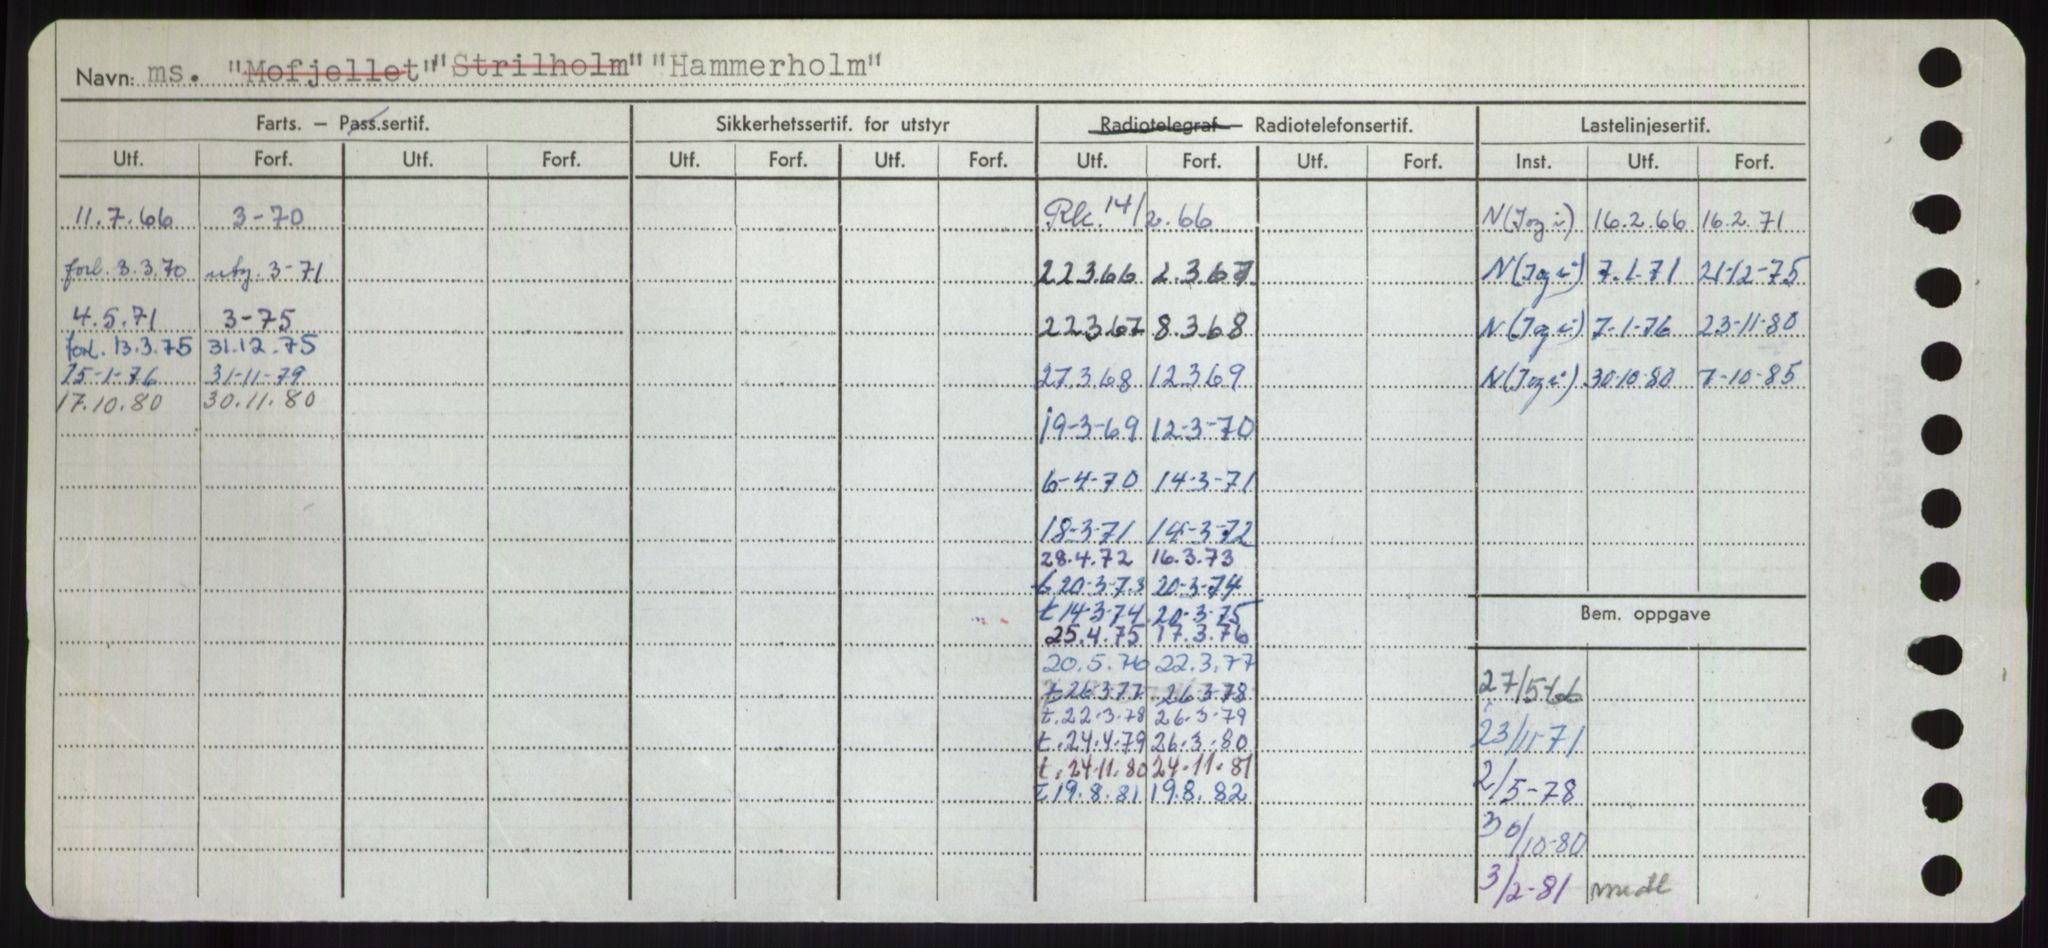 Navn: ms. "Mofjellet" "Strilholm" "Hammerholm"
Farts. — Pass.sertif. Sikkerhetssertif. for utstyr Radiotelegraf — Radiotelefonsertif. Lastelinjesertif.
Utf. Forf. Utf. Forf. Utf. Forf. Utf. Forf. Utf. Forf. Utf. Forf. Inst. Utf. Forf.
11.7.66 3-70
forl. 3.3.70 utg. 3-71
4.5.71 3-75
forl. 13.3.75 31.12.75
15-1-76 31-11-79
17.10.80 30.11.80
Rk. 14/2.66
22.3.66 2.3.67
22.3.67 8.3.68
27.3.68 12.3.69
19-3-69 12-3-70
6-4-70 14-3-71
18-3-71 14-3-72
28.4.72 16.3.73
t 20-3-73 20-3-74
t 14-3-74 20-3-75
25.4.75 17.3.76
20.5.76 22.3.77
t 26-3-77 26-3-78
t. 22.3.78 26.3.79
t. 24.4.79 26.3.80
t. 24.11.80 24.11.81
t 19.8.81 19.8.82
N(I og i) 16.2.66 16.2.71
N(I og i) 7.1-71 21-12-75
N(I og i) 7-1-76 23-11-80
N(I og i) 30-10-80 7-10-85
Bem. oppgave
27/5-66
23/11-71
2/5-78
30/10-80
3/2-81 midl